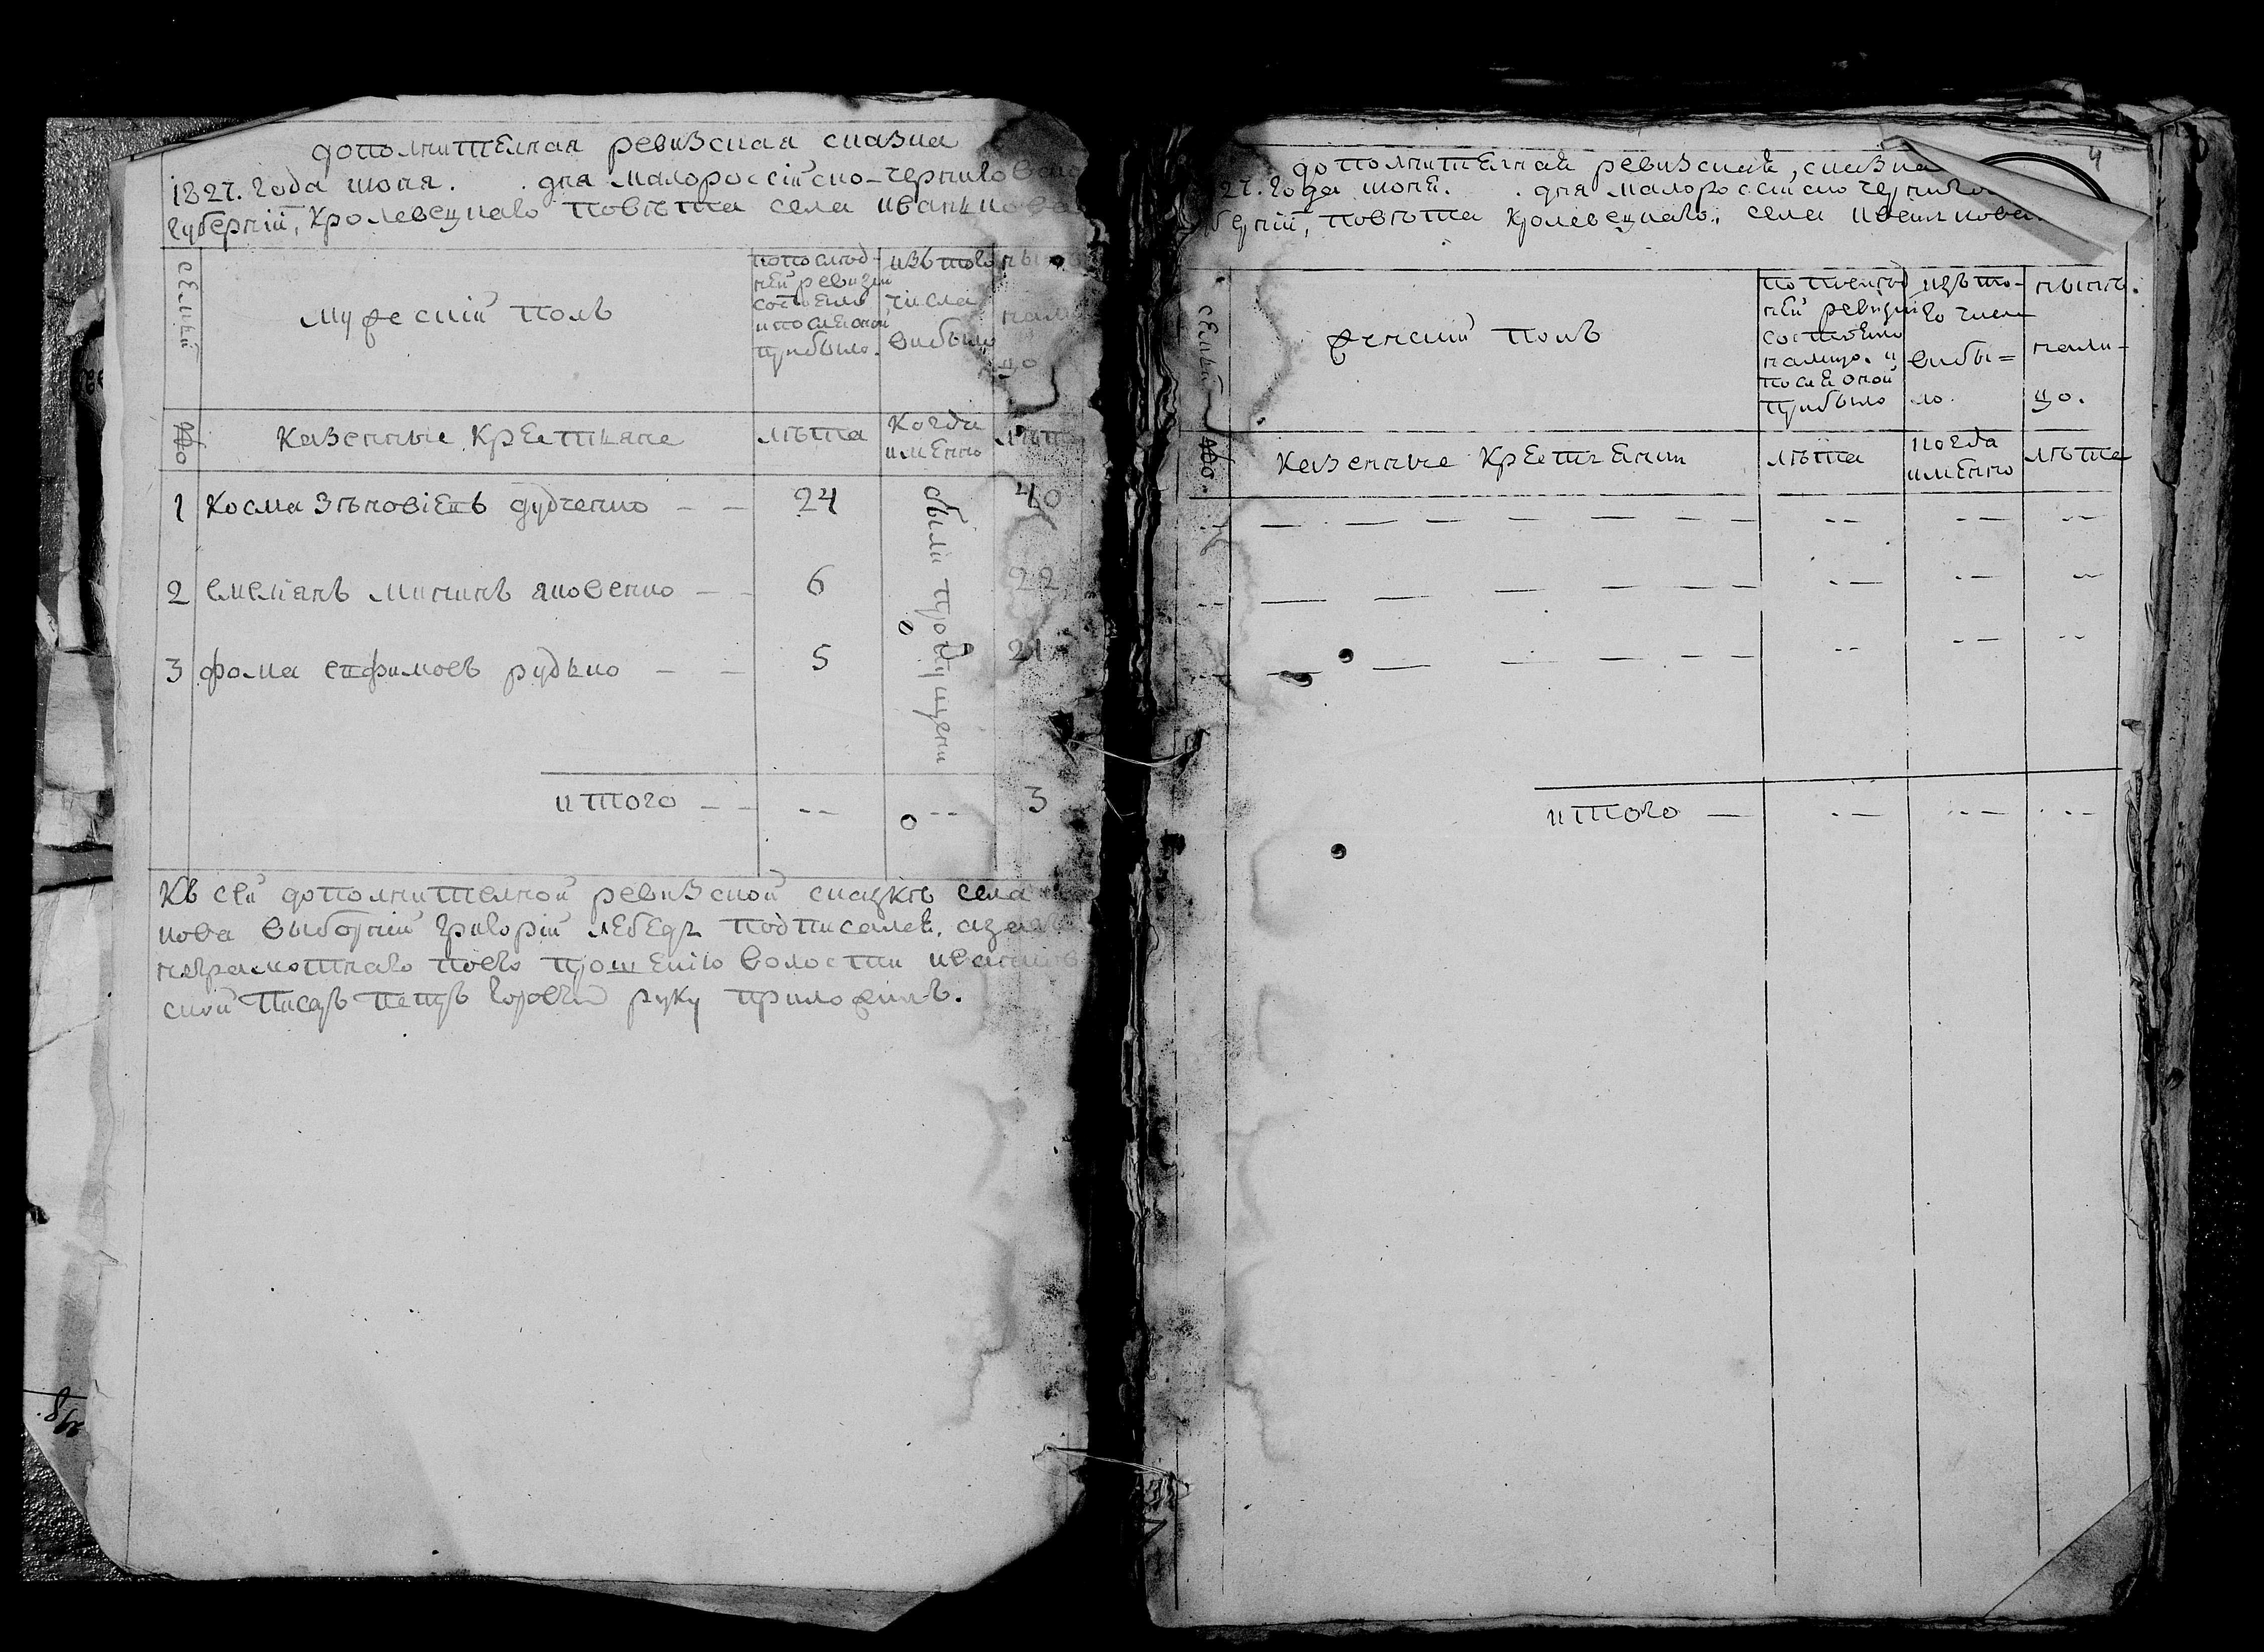 дополнителная ревизская сказка
1827. года июня. . дня малороссійско-черниговско
губерніи, кролевецкаго повѣта села иванкова
семей
мужескій полъ
по послѣд-
ней ревизіи
состояло
и после оной
прибыло.
изъ того
числа
выбыло
нынѣ
нали
цо
казенные крестьяне
лѣта
когда
именно
лѣта
1 косма зѣновіевъ дудченко — — 24 40
2 емеліанъ мининъ яковенко — — 6 22
3 фома евфимовъ рудько — — 5 21
были пропущени
итого — — -- -- 3
Къ сей дополнителной ревизской сказкѣ села
кова выборній григорій лебедь подписался, а за
неграмотнаго по его прошенію волости иванков
ской писарь петръ руку приложилъ.
4
дополнителная ревизская, сказка
27. года июня. . дня малороссійско черниго
берніи, повѣта кролевецкаго. села иванкова
семей
женскій полъ
состояло
налицо. и
после оной
прибыло
изъ то-
го числа
выбы=
ло.
нынѣ.
нали-
цо.
казенные крестьянки
лѣта
когда
именно
лѣта
итого — -- -- --